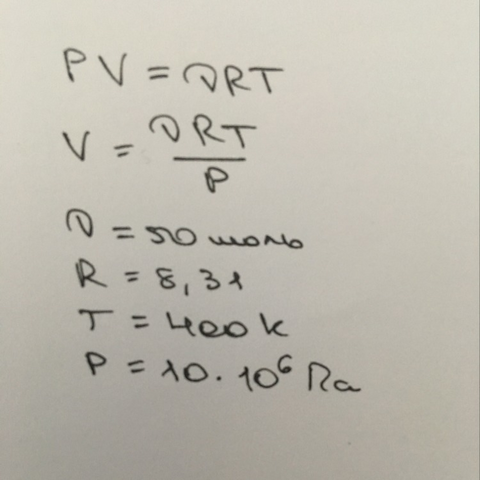 PV = νRT
V = νRT / P
ν = 50 моль
R = 8,31
T = 400 K
P = 10 · 10⁶ Па